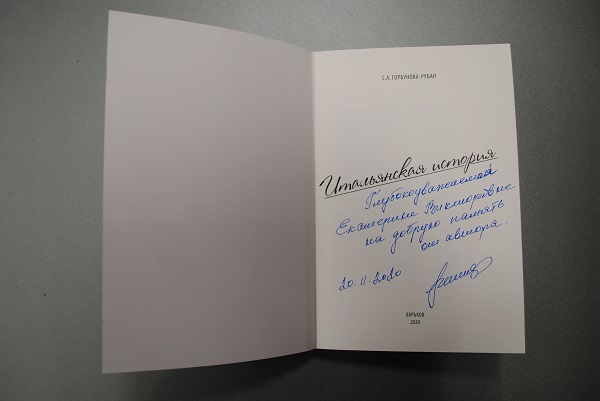 С.А. ГОРБУНОВА-РУБАН
Итальянская история
Глубокоуважаемой
Екатерине Викторовне
на добрую память
от автора.
20.11.2020
ХАРЬКОВ
2020